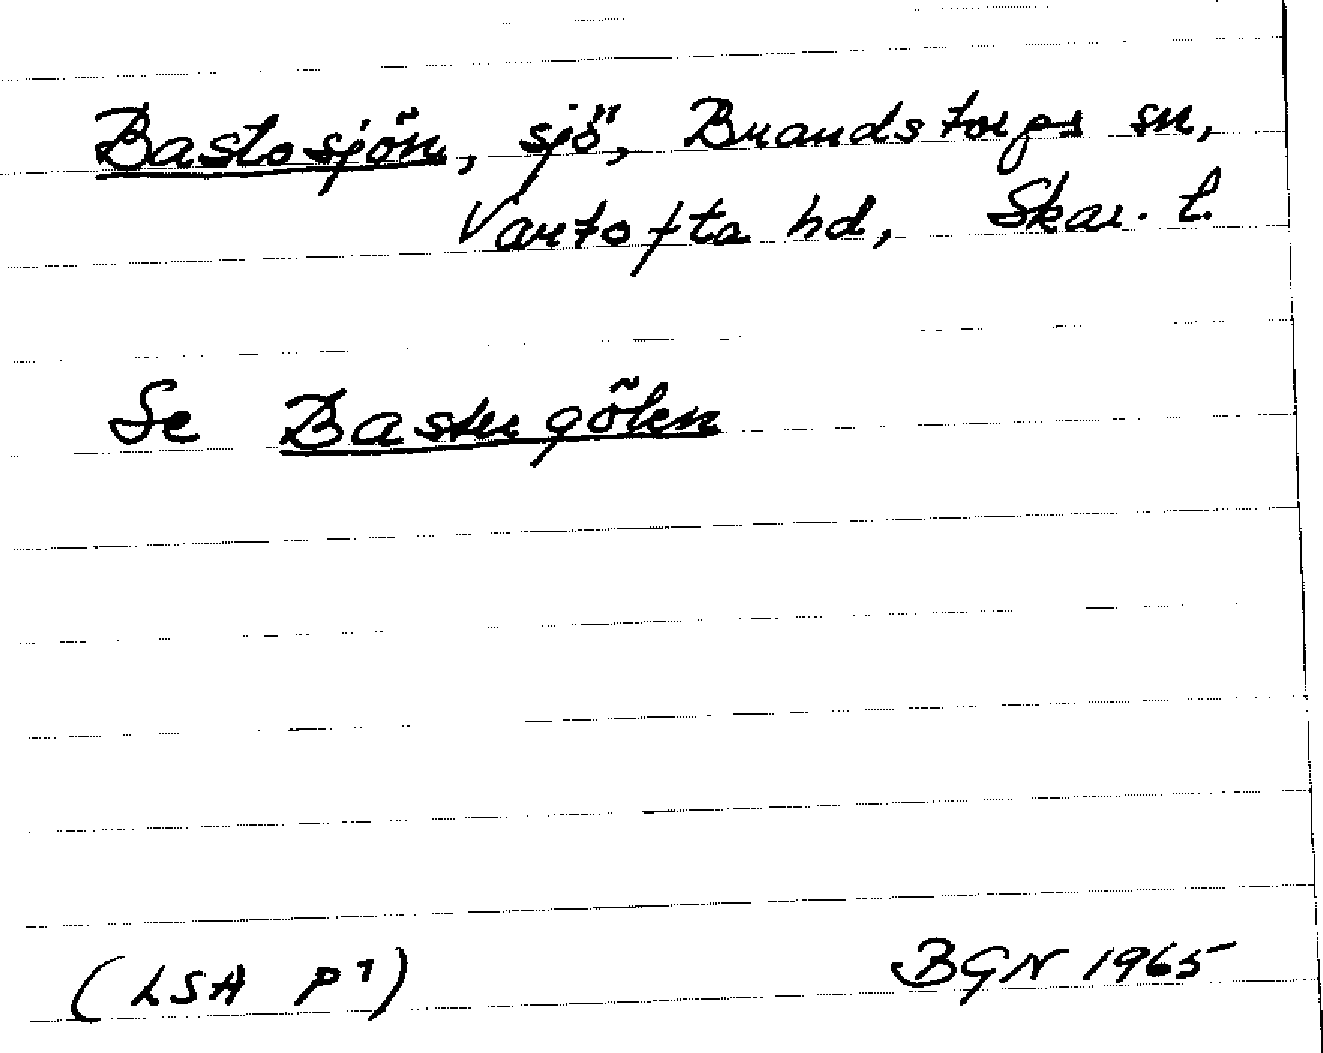 Bastosjön, sjö, Brandstorps sn,
Vartofta hd, Skar. l.
Se Bastugölen
(LSA P 7)
BGN 1965